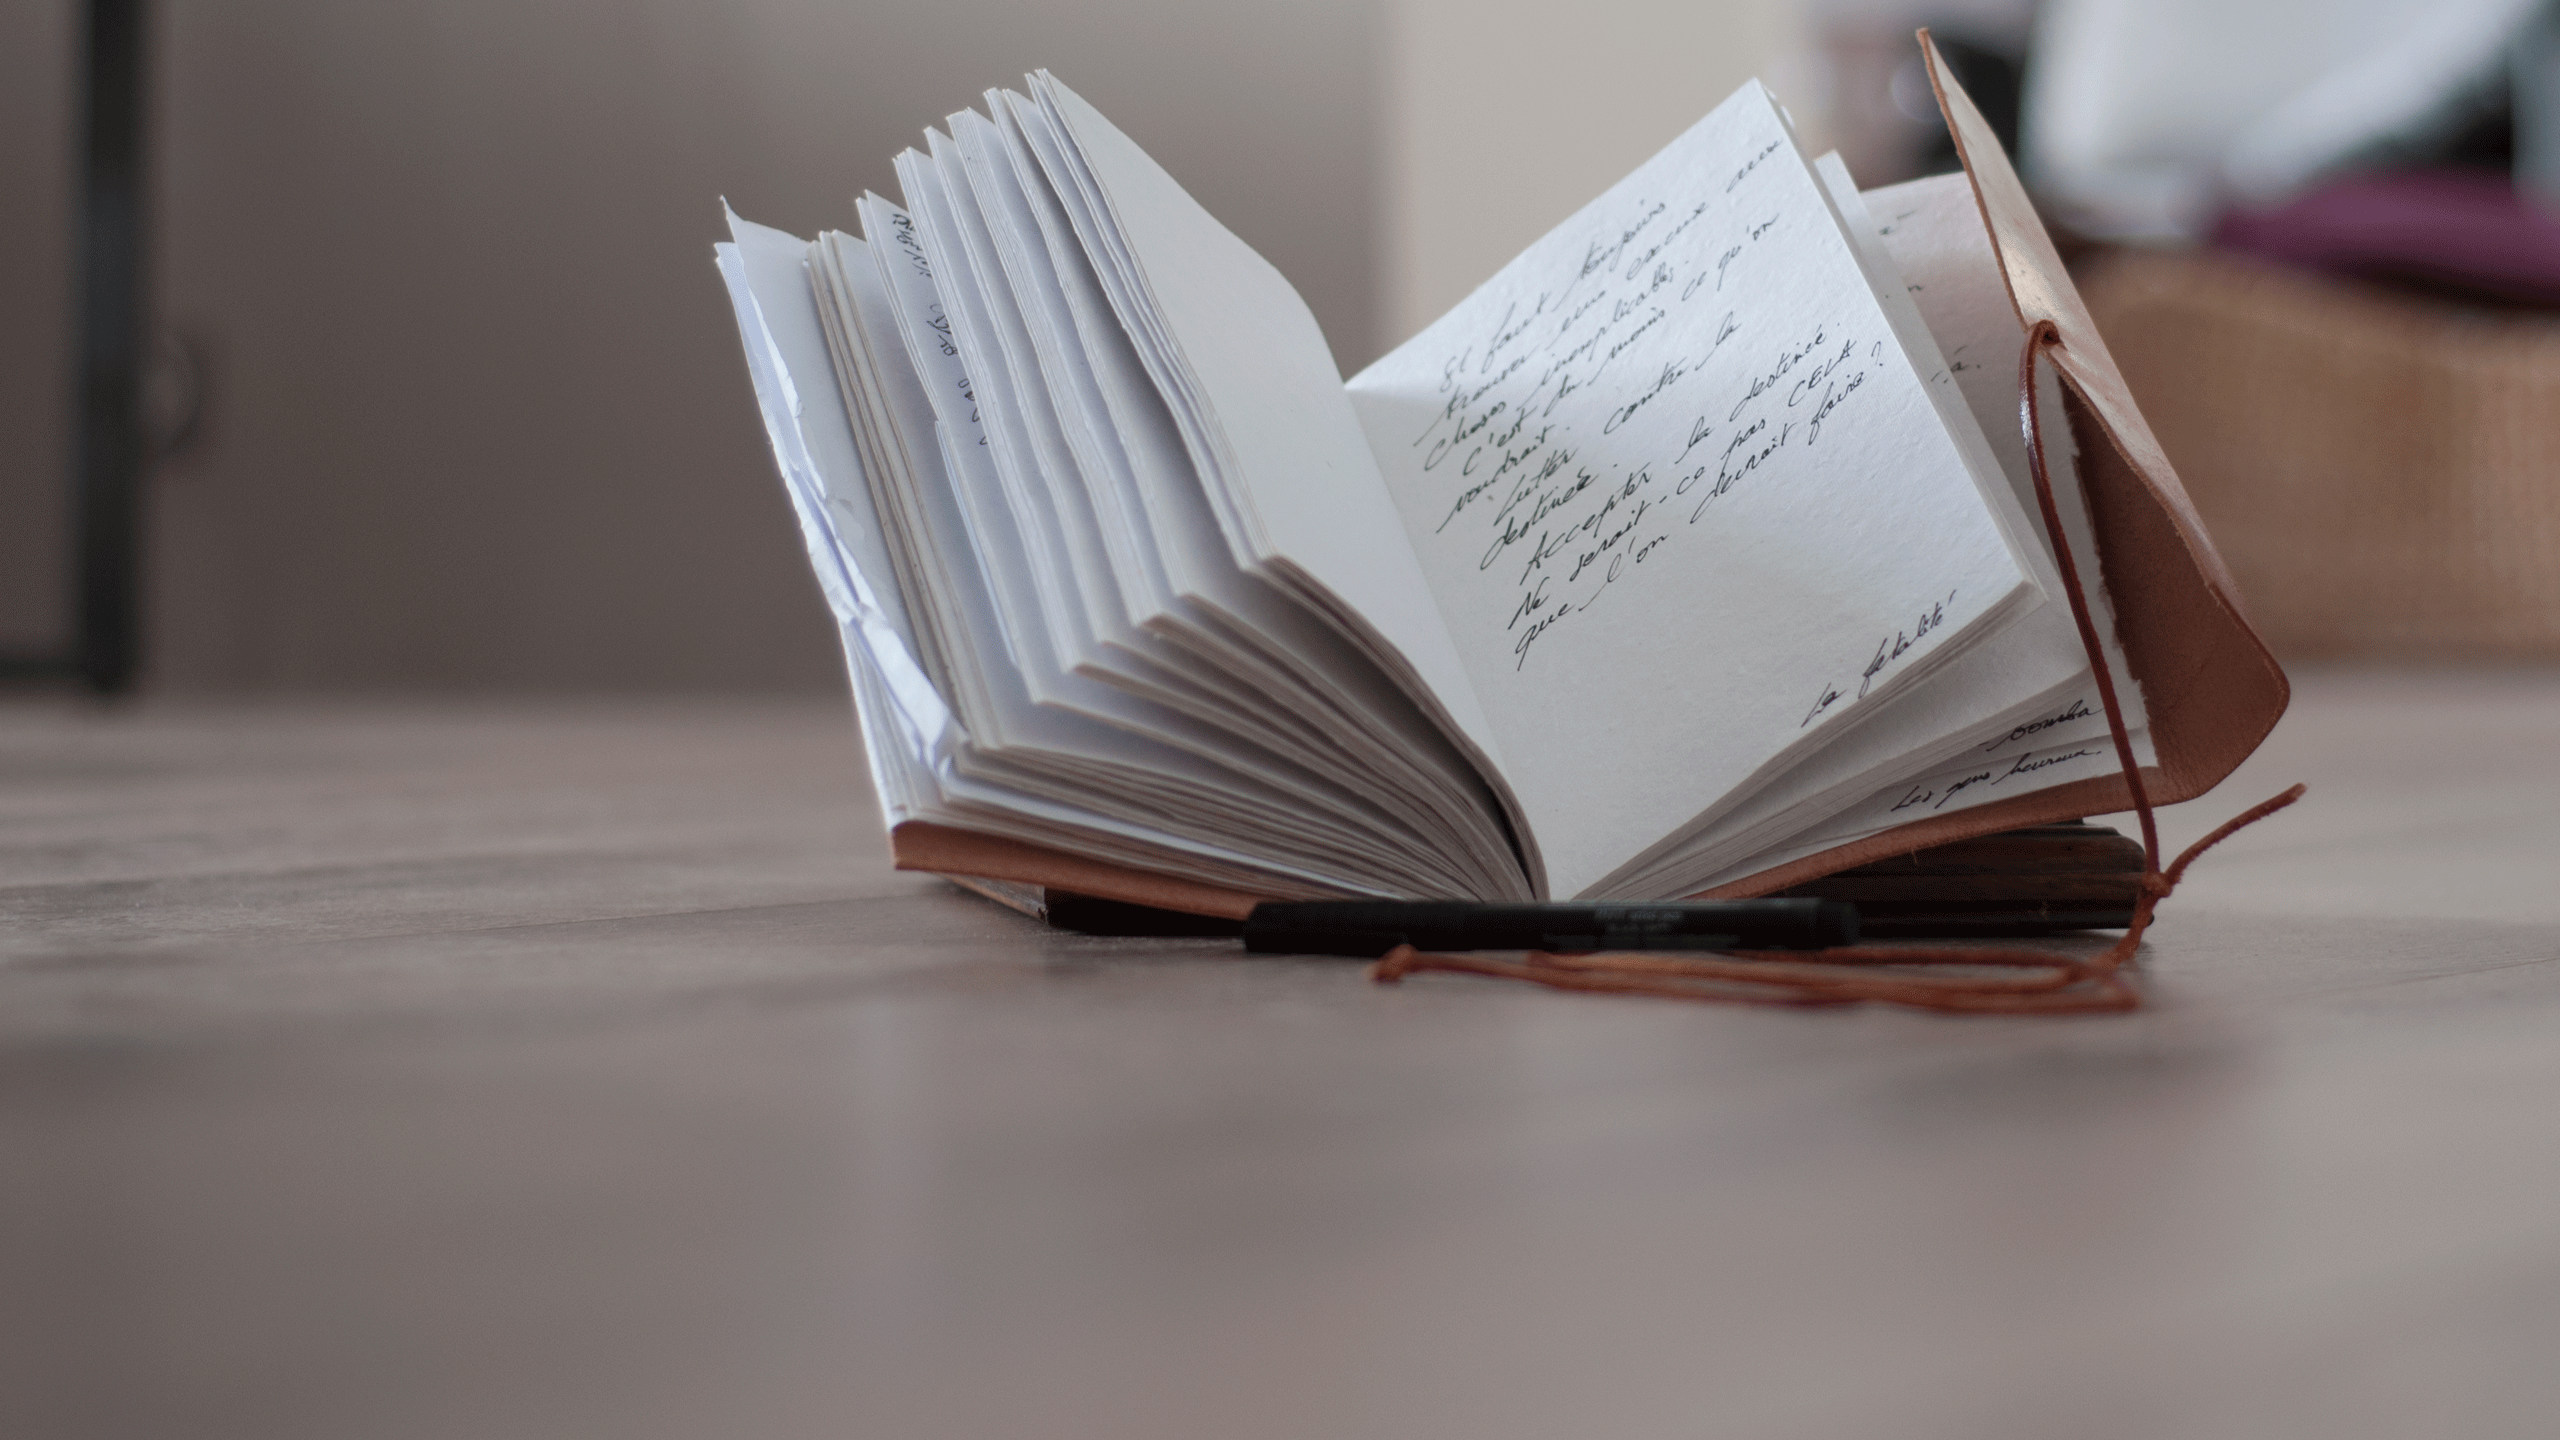 Il faut toujours
trouver une excuse aux
choses inexplicables.
C'est du moins ce qu'on
voudrait.
Lutter contre la
destinée.
Accepter la destinée.
Ne serait-ce pas CELA
que l'on devrait faire ?
La fatalité
Les gens heureux.